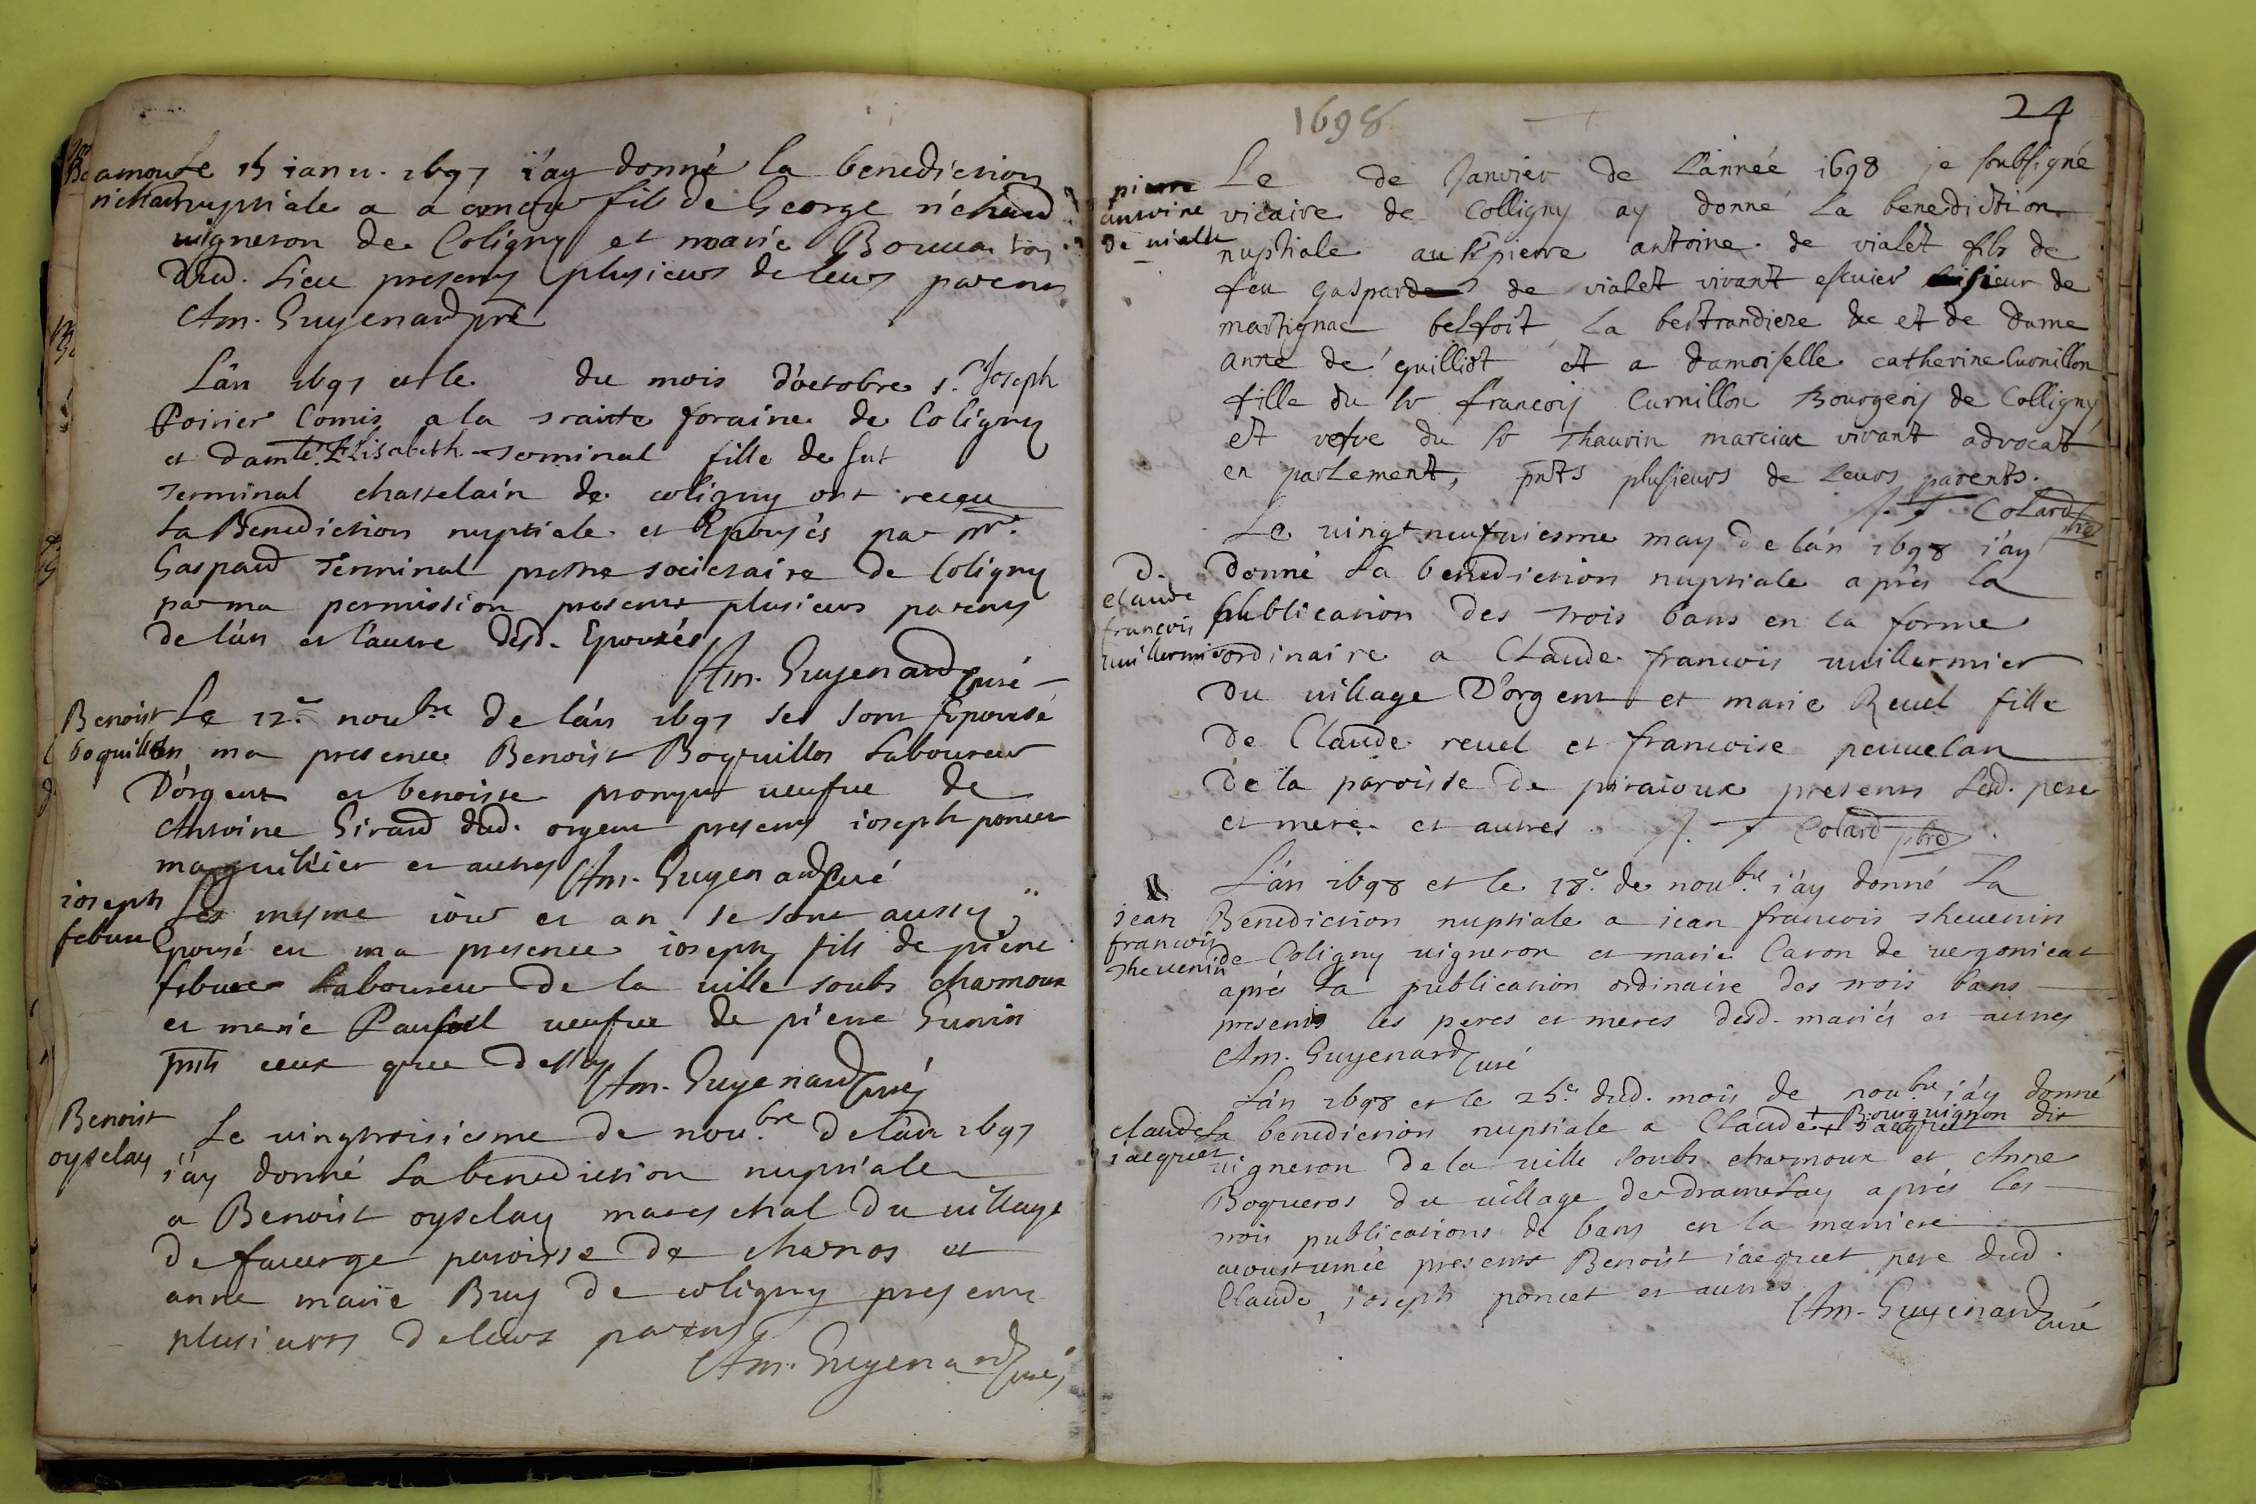 amour
richard
Le 15 ianu. 1697 i'ay donné la benediction
nuptiale a a amour fils de George richard
uigneron de Coligny et marie Bouua
dud. Lieu presens plusieurs de leurs parens
Am. Guyenard pre
L'an 1697 et le du mois d'octobre sr. Joseph
Poirier Comis a la traitte foraine de Coligny
et damlle. Elisabeth Terminal fille de fut
Terminal chastelain de coligny ont reçeu
La Benediction nuptiale et Epousés par mre.
Gaspard Terminal prestre societaire de Coligny
par ma permission presents plusieurs parens
de l'un et l'autre desd. Epousés
Am. Guyenard curé
Benoist
boquillon
Le 12e. noubre de l'an 1697 se sont Epousé
en ma presence Benoist Boquillon Laboureur
D'orgent et benoiste ueufue de
Antoine Girard dud. orgent presens ioseph poncet
marguillier et autres Am. Guyenard curé
ioseph
febure
Les mesme iour et an se sont aussy
Epousé en ma presence ioseph fils de pierre
febure Laboureur de la uille soubs charmoux
et marie ueufue de pierre
pnts ceux que dessus
Am. Guyenard curé
Benoist
oyselay
Le uingtroisiesme de noubre de l'an 1697
i'ay donné La benediction nuptiale
a Benoist oyselay mareschal du uillage
de fauerge paroisse de charnos et
anne marie Buy de coligny presens
plusieurs de leurs parens
Am. Guyenard curé
1698
24
pierre
antoine
de uialet
Le de Janvier de L'année 1698 je soubsigné
vicaire de Colligny ay donné La benediction
nuptiale au sr pierre antoine de vialet fils de
feu gaspard de vialet vivant escuier sieur de
martignac belfoit La bertrandiere &c et de dame
anne de guilliot et a damoiselle catherine Curnillon
fille du sr francois Curnillon Bourgeois de Colligny
et vefve du sr Thauvin marciac vivant advocat
en parlement, pnts plusieurs de Leurs parents.
J. F. Colard pbre
D.
claude
francois
uuillermier
Le uingt neufuiesme may de l'an 1698 i'ay
donné La benediction nuptiale aprés la
publication des trois bans en la forme
ordinaire a Claude francois uuillermier
du uillage D'orgent et marie Reuel fille
de Claude reuel et francoise peuuelan
de la paroisse de piraioux presents Lesd. pere
et mere et autres. J. F. Colard pbre
iean
francois
theuenin
L'an 1698 et le 18e. de noubre i'ay donné La
Benediction nuptiale a iean francois theuenin
de Coligny uigneron et marie Caron de uergonieat
aprés La publication ordinaire des trois bans
presents les peres et meres desd. mariés et autres
Am. Guyenard curé
claude
iacquet
L'an 1698 et le 25e. dud. mois de noubre i'ay donné
La benediction nuptiale a Claude + Bourguignon dit
+ iacquet
uigneron de la uille soubs charmoux et Anne
Boqueros du uillage de dramelay aprés les
trois publications de bans en la maniere
acoustumée presents Benoist iacquet pere dud.
Claude, ioseph poncet et autres
Am. Guyenard curé